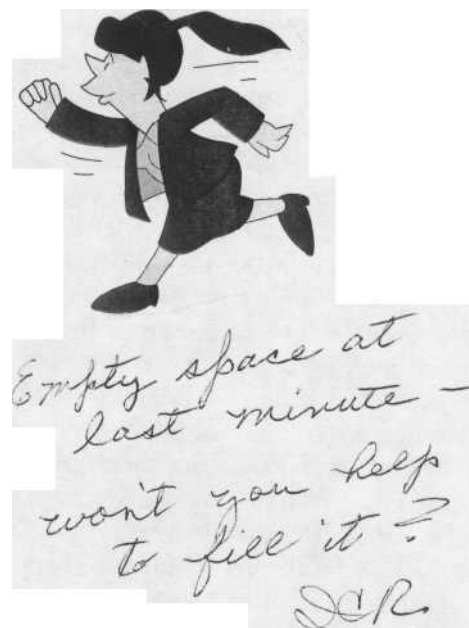 Empty space at
last minute —
won't you help
to fill it?